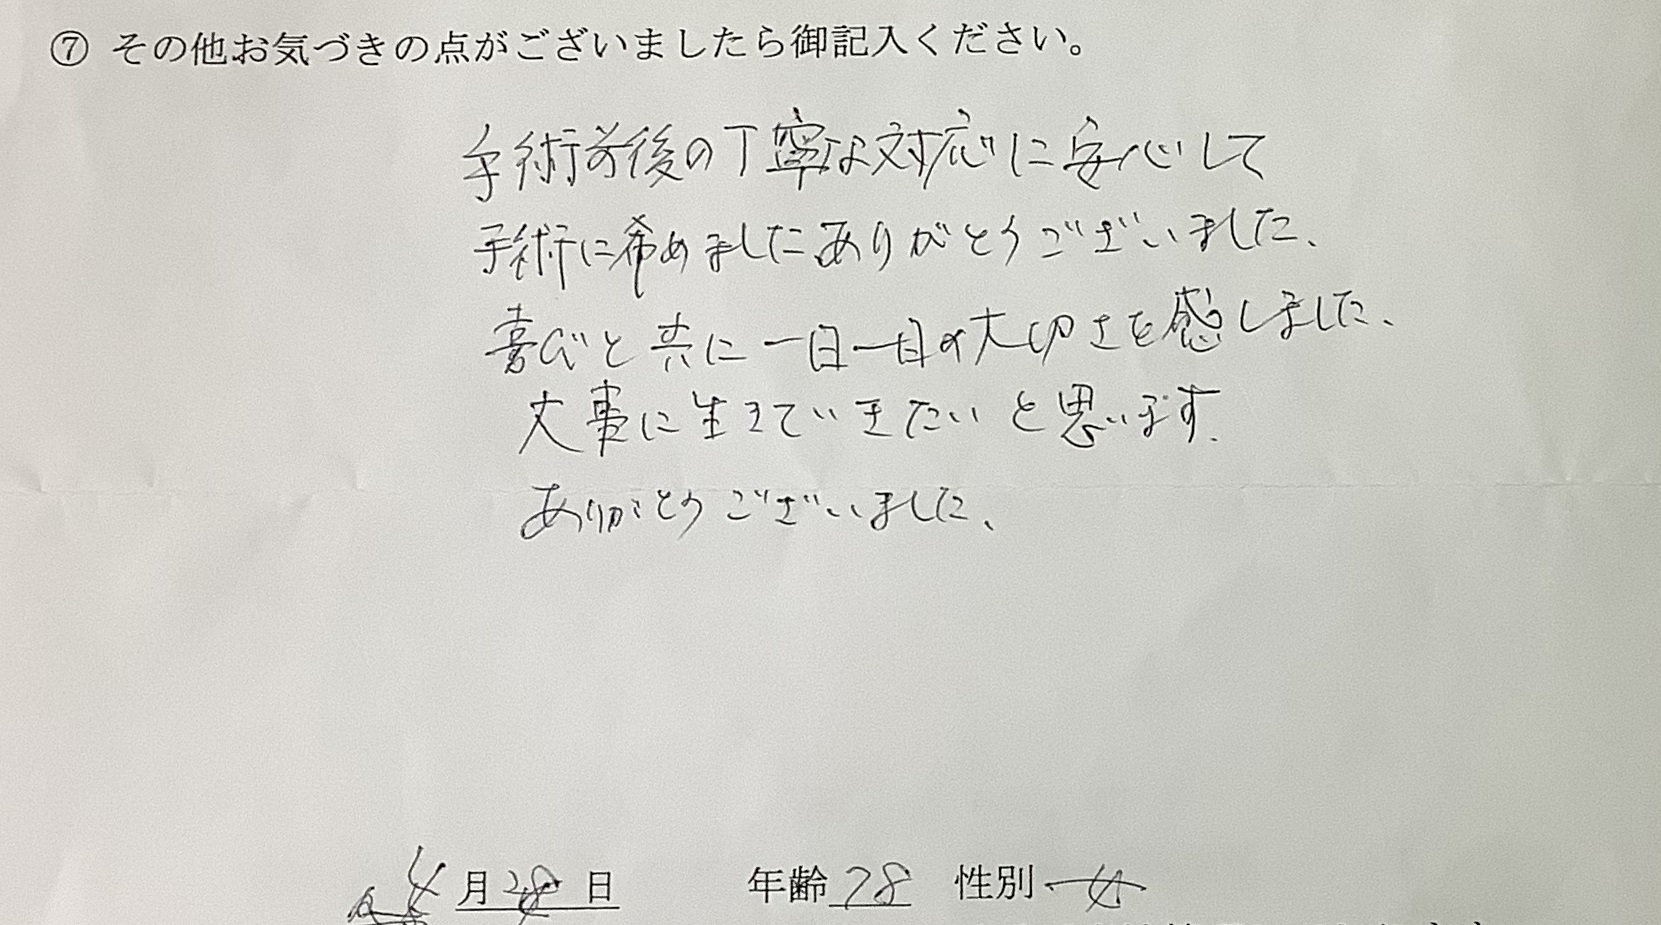 ⑦ その他お気づきの点がございましたら御記入ください。
手術前後の丁寧な対応に安心して
手術に希めましたありがとうございました、
喜びと共に一日一日の大切さを感しました、
大事に生きていきたいと思います.
ありがとうございました、
4月28日 年齢78 性別 女